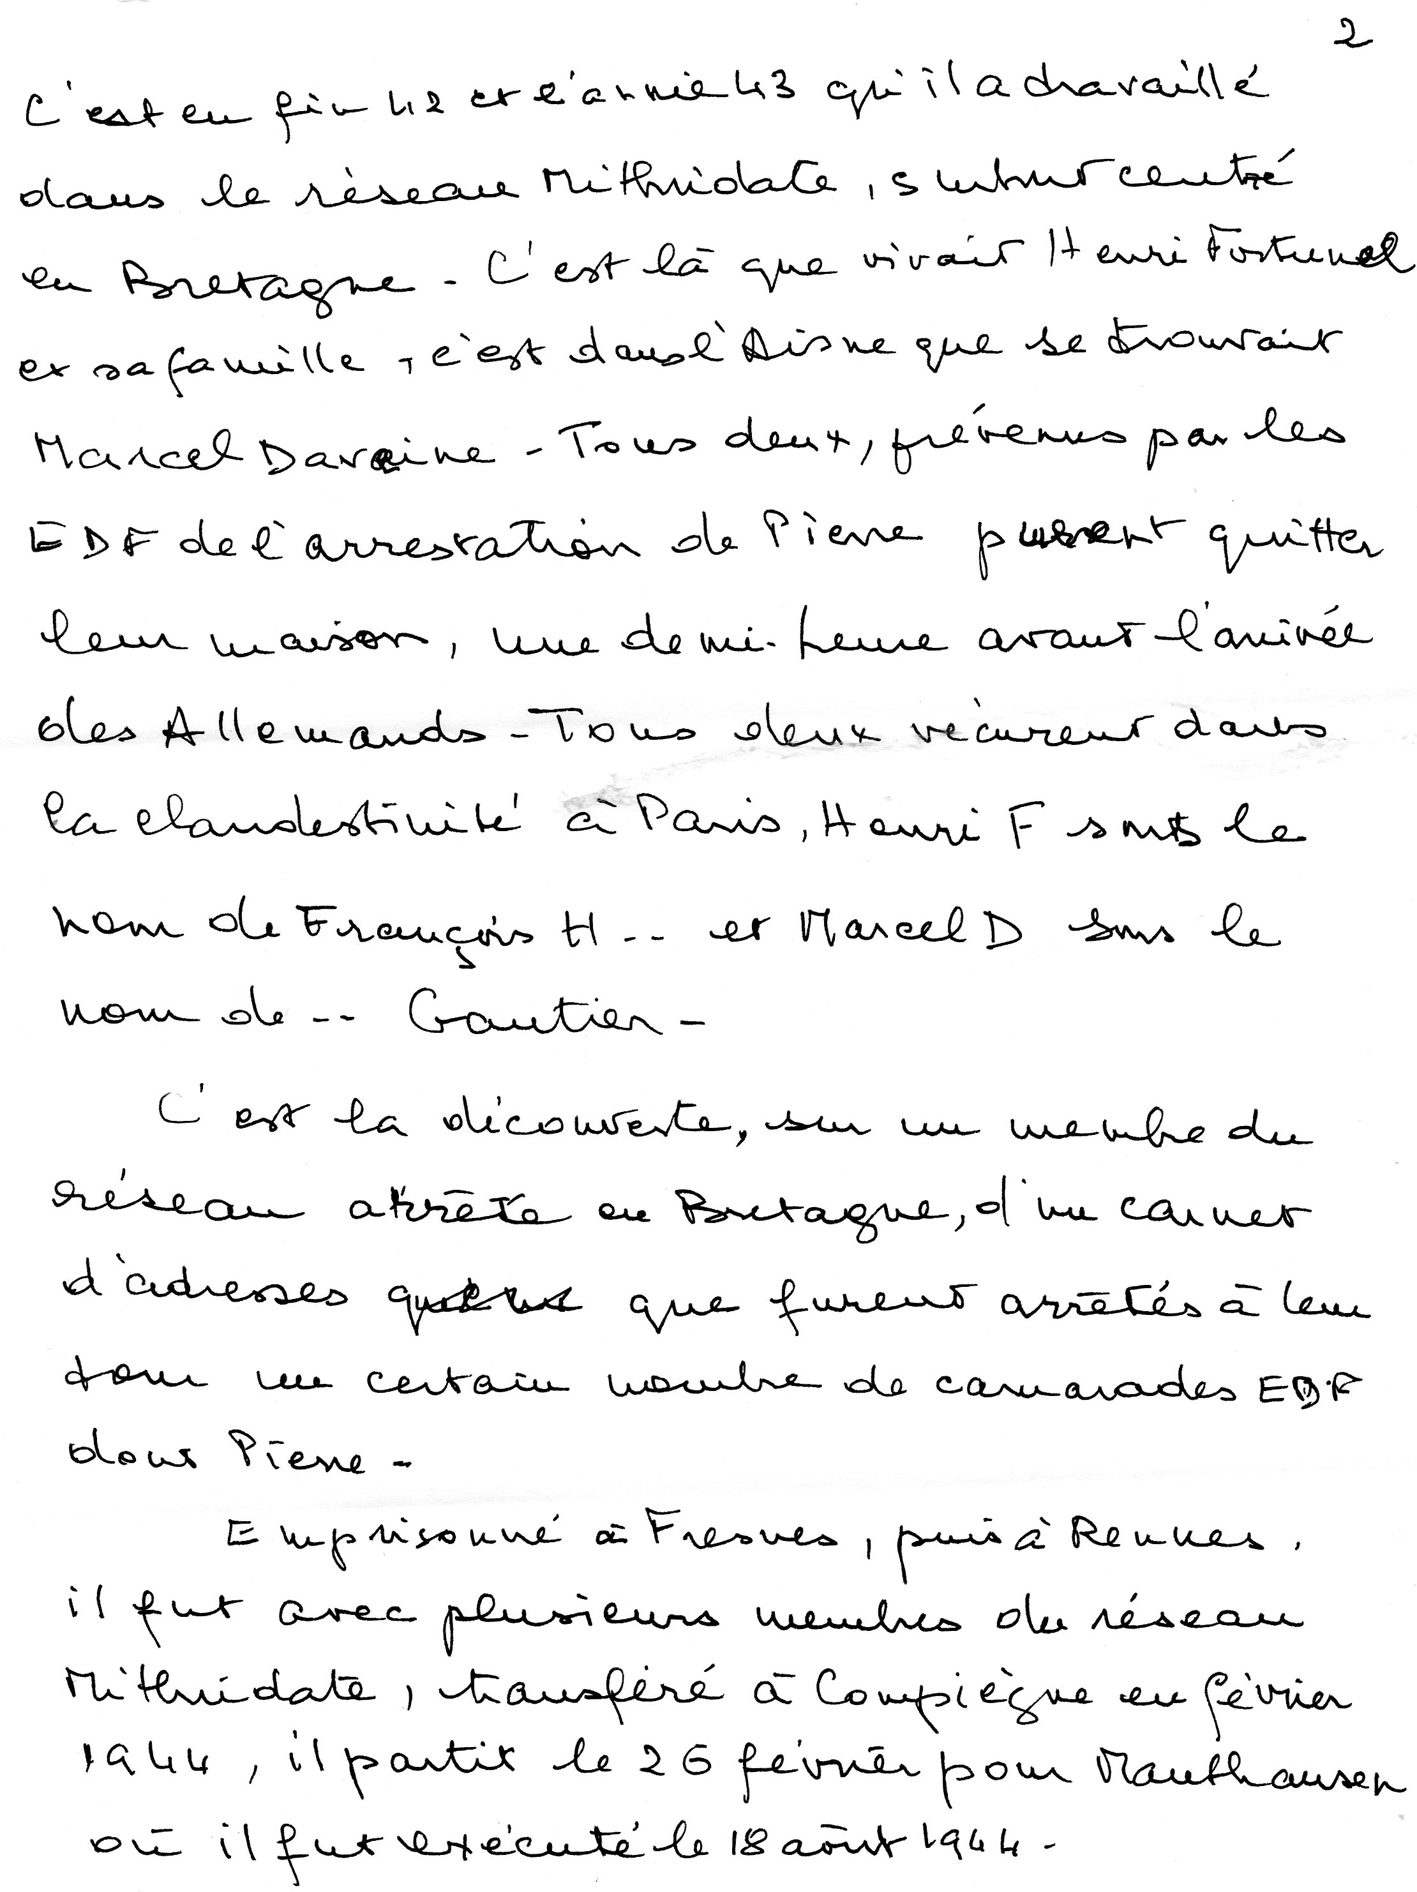 2
C'est en fin 42 et l'année 43 qu'il a travaillé
dans le réseau Mithridate, surtout centré
en Bretagne - C'est là que vivait Henri Fortunel
et sa famille, c'est dans l'Aisne que se trouvait
Marcel Daveine - Tous deux, prévenus par les
EDF de l'arrestation de Pierre purent quitter
leur maison, une demi-heure avant l'arrivée
des Allemands - Tous deux vécurent dans
la clandestinité à Paris, Henri F sous le
nom de François H -- et Marcel D sous le
nom de -- Gautier -
C'est la découverte, sur un membre du
réseau arrêté en Bretagne, d'un carnet
d'adresses que furent arrêtés à leur
tour un certain nombre de camarades EDF
dont Pierre -
Emprisonné à Fresnes, puis à Rennes,
il fut avec plusieurs membres du réseau
Mithridate, transféré à Compiègne en février
1944, il partit le 26 février pour Mauthausen
où il fut exécuté le 18 août 1944 -